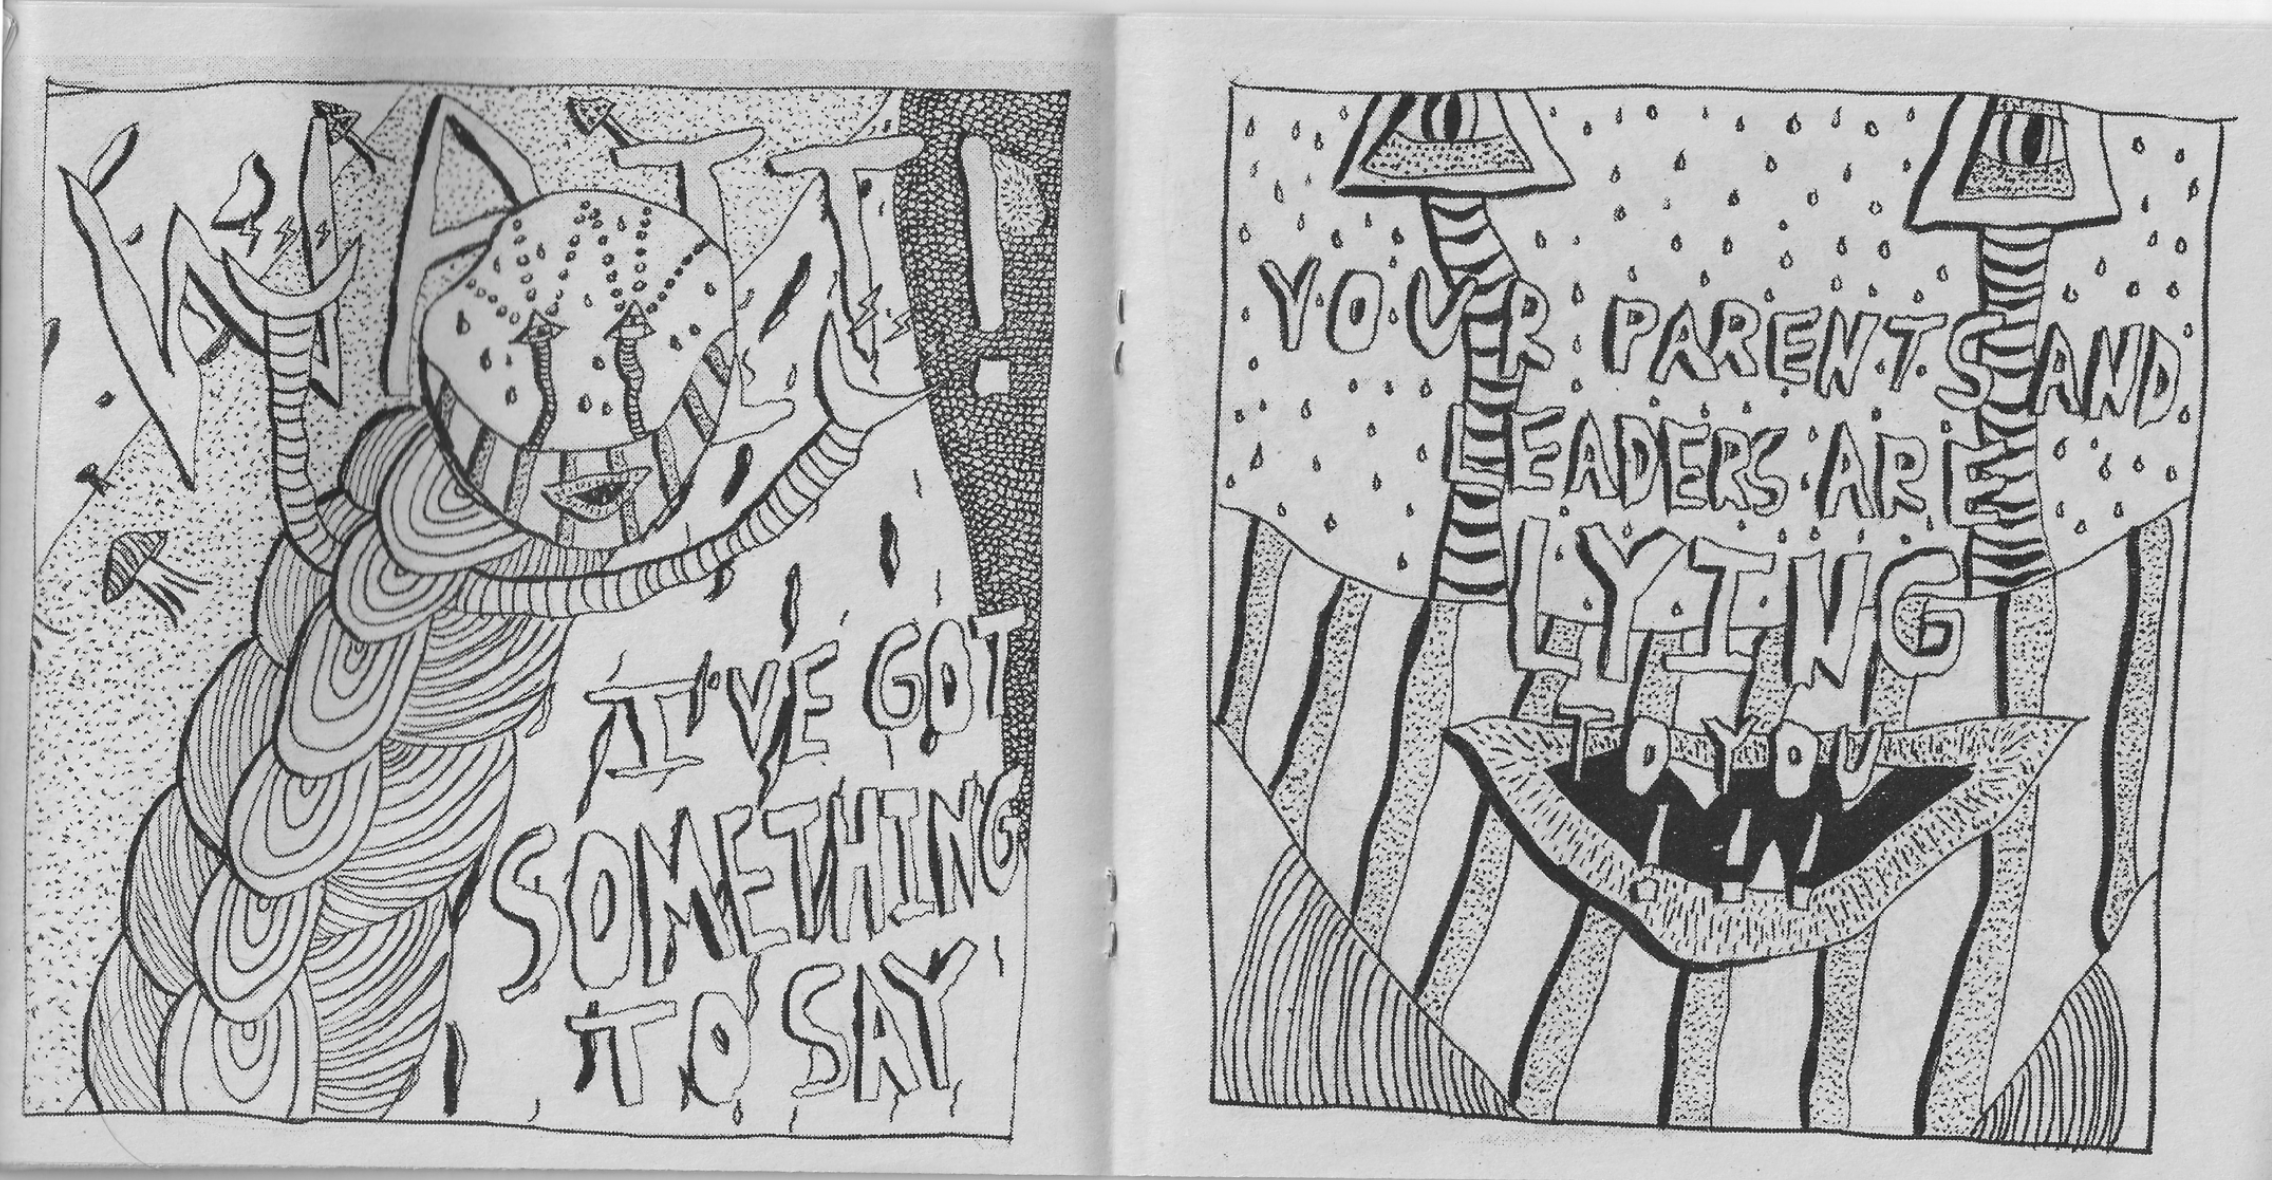 WAIT!
I'VE GOT
SOMETHING
TO SAY
YOUR PARENTS AND
LEADERS ARE
LYING
TO YOU
!!!